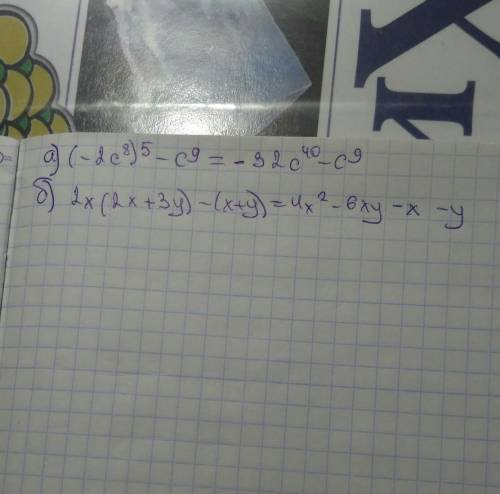 Кк
а) (-2c⁸)⁵ - c⁹ = -32c⁴⁰ - c⁹
б) 2x(2x+3y) - (x+y) = 4x² - 6xy - x - y